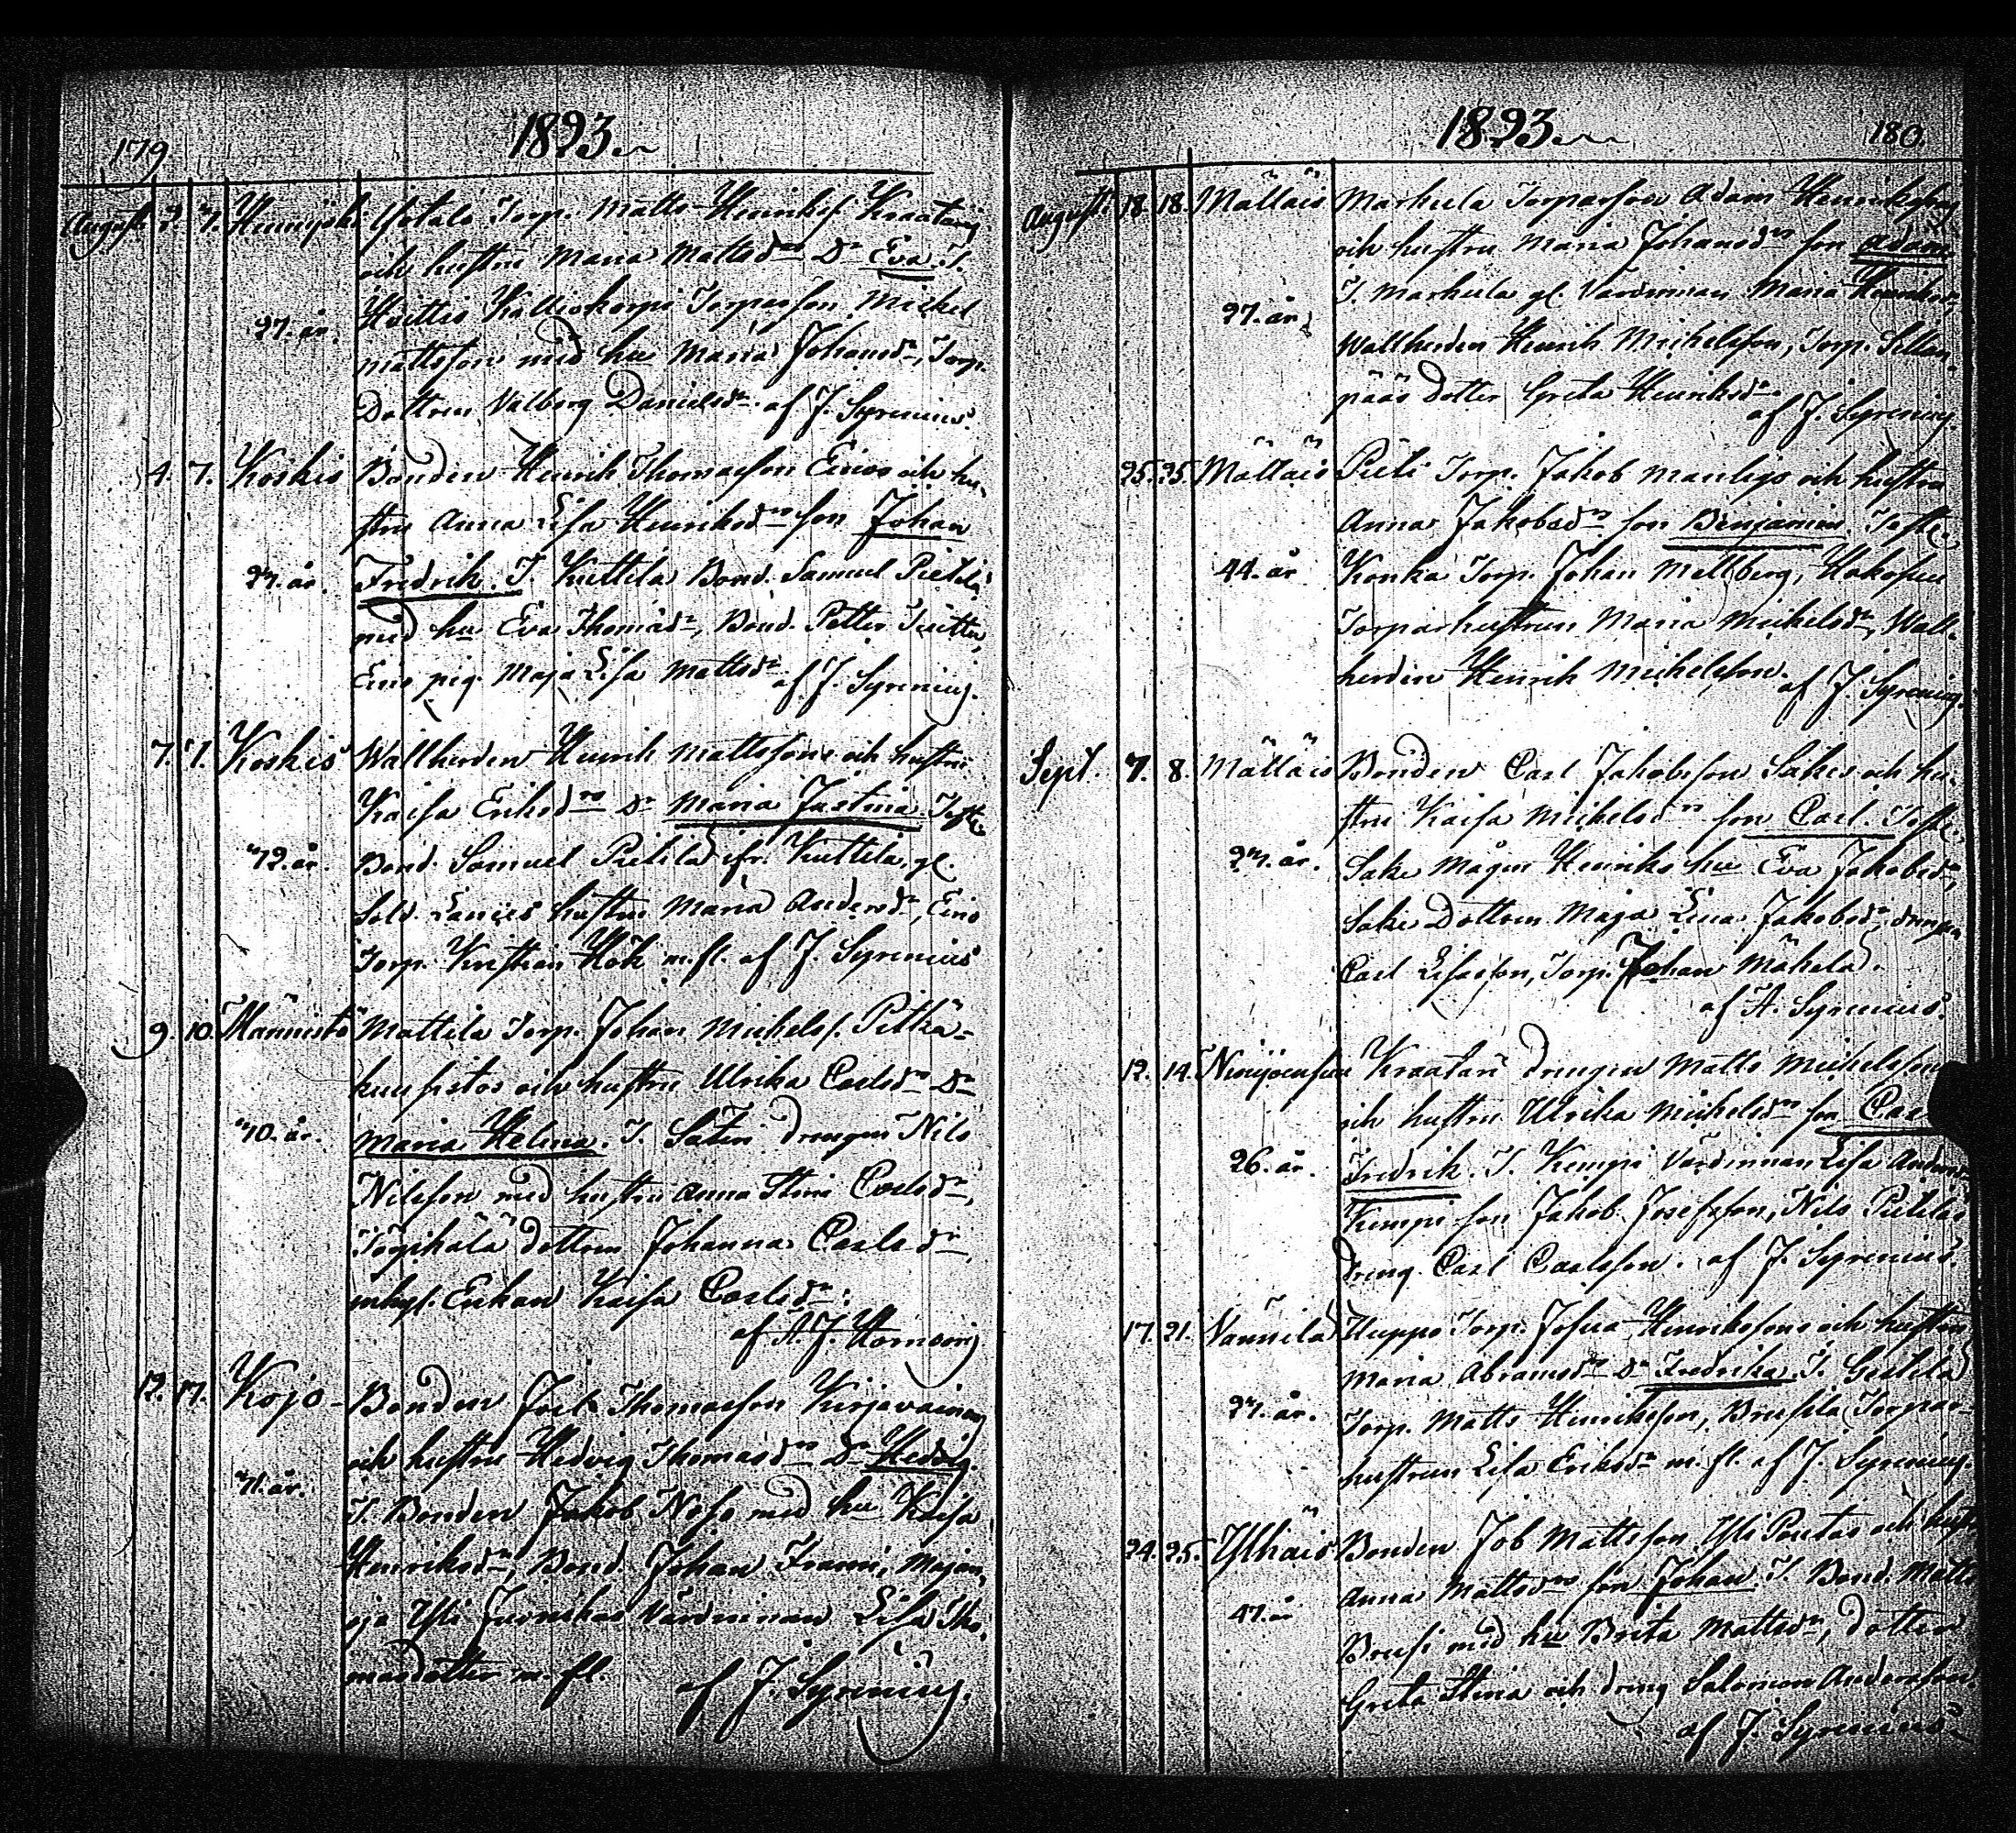 179.
1823.
August. 2. 7. Torp. Matts Henriksf. Kraatarij
och hustru Maria Mattsdrs Dr Eva. T.
Huittis Kalliokorpi Torparson Michel
27. år.
Mattsson med hu Maria Johansdr, Torp.
Dottren Valborg Danielsdr. af J. Syrenius.
4. 7. Koskis Bonden Henrik Thomasson Einos och hu-
stru Anna Lisa Henriksdrs son Johan
27. år. Fredrik. T. Kuttila Bond. Samuel Pietilä
med hu Eva Thomasdr, Bond. Petter
Eino pig. Maja Lisa Mattsdr. af J. Syrenius.
7. 7. Koskis Wallherden Henrik Mattssons och hustru
Kaisa Eriksdrs Dr Maria Justina. Test.
42. år. Bond. Samuel Pietilä ifr. Kuttila, gl.
Sold. hustru Maria Andersdr, Eino
Torp. Kristian Hök m. fl. af J. Syrenius
9. 10. Männistö Mattila Torp. Johan Michelsf. Pitkä-
och hustru Ulrika Carlsdrs Dr
40. år. Maria Helena. T. Sateri drengen Nils
Nilsson med hustru Anna Stina Carlsdr,
dottren Johanna Carlsdr
inhys. Enkan Kaisa Carlsdr.
af A. J. Hornborg
12. 17. Kojo - Bonden Joel Thomasson Kirjavainen
och hustru Hedvig Thomasdrs Dr Hedvig.
41. år.
T. Bonden Jakob Noho med hu Kaisa
Henriksdr, Bond. Johan Frami, Majan
oja Yli Värdinnan Lisa Tho-
masdotter m. fl. af J. Syrenius.
1823.
180.
August. 18. 18. Mälläis Markula Torparson Adam Henrikssons
och hustru Maria Johansdrs son Adam
T. Markula gl. Värdinnan Maria
27. år.
Wallherden Henrik Michelsson, Torp. Sillan-
pääs dotter Greta Henriksdr.
af J. Syrenius.
25. 25. Mälläis Torp. Jakob Manligs och hustru
Anna Jakobsdrs son Benjamin. Test.
44. år Konka Torp. Johan Mellberg, Hakosen
Torparhustrun Maria Michelsdr, Wall-
herden Henrik Michelsson. af J. Syrenius
Sept. 7. 8. Mälläis Bonden Carl Jakobsson Sakes och hu-
stru Kaisa Michelsdrs son Carl. Test.
27. år. Sake Mågen Henriks hu Eva Jakobsdr,
Sakes Dottren Maja Lena Jakobsdr, drengen
Carl Johan Mäkelä.
af A. Syrenius.
12. 14. Kraatari drengen Matts Michelsson
och hustru Ulrika Michelsdrs son Carl
26. år. Fredrik. T. Kemppi Värdinnan Lisa
Kemppi son Jakob Josefsson, Nils Pietilas
dreng Carl Carlsson. af J. Syrenius.
17. 21. Vannila Huppo Torp. Josua Henrikssons och hustru
Maria Abramsdrs Dr Fredrika. T.
27. år. Torp. Matts Henriksson, Brusila Torpar-
hustrun Lisa Eriksdr m. fl. af J. Syrenius.
24. 25. Ylhäis Bonden Job Mattsson Yli Pontas och hustru
Anna Mattsdrs son Johan. T. Bond. Matts
47. år
Brusi med hu Brita Mattsdr, dotter
Greta Stina och dreng Salomon Andersson.
af J. Syrenius.